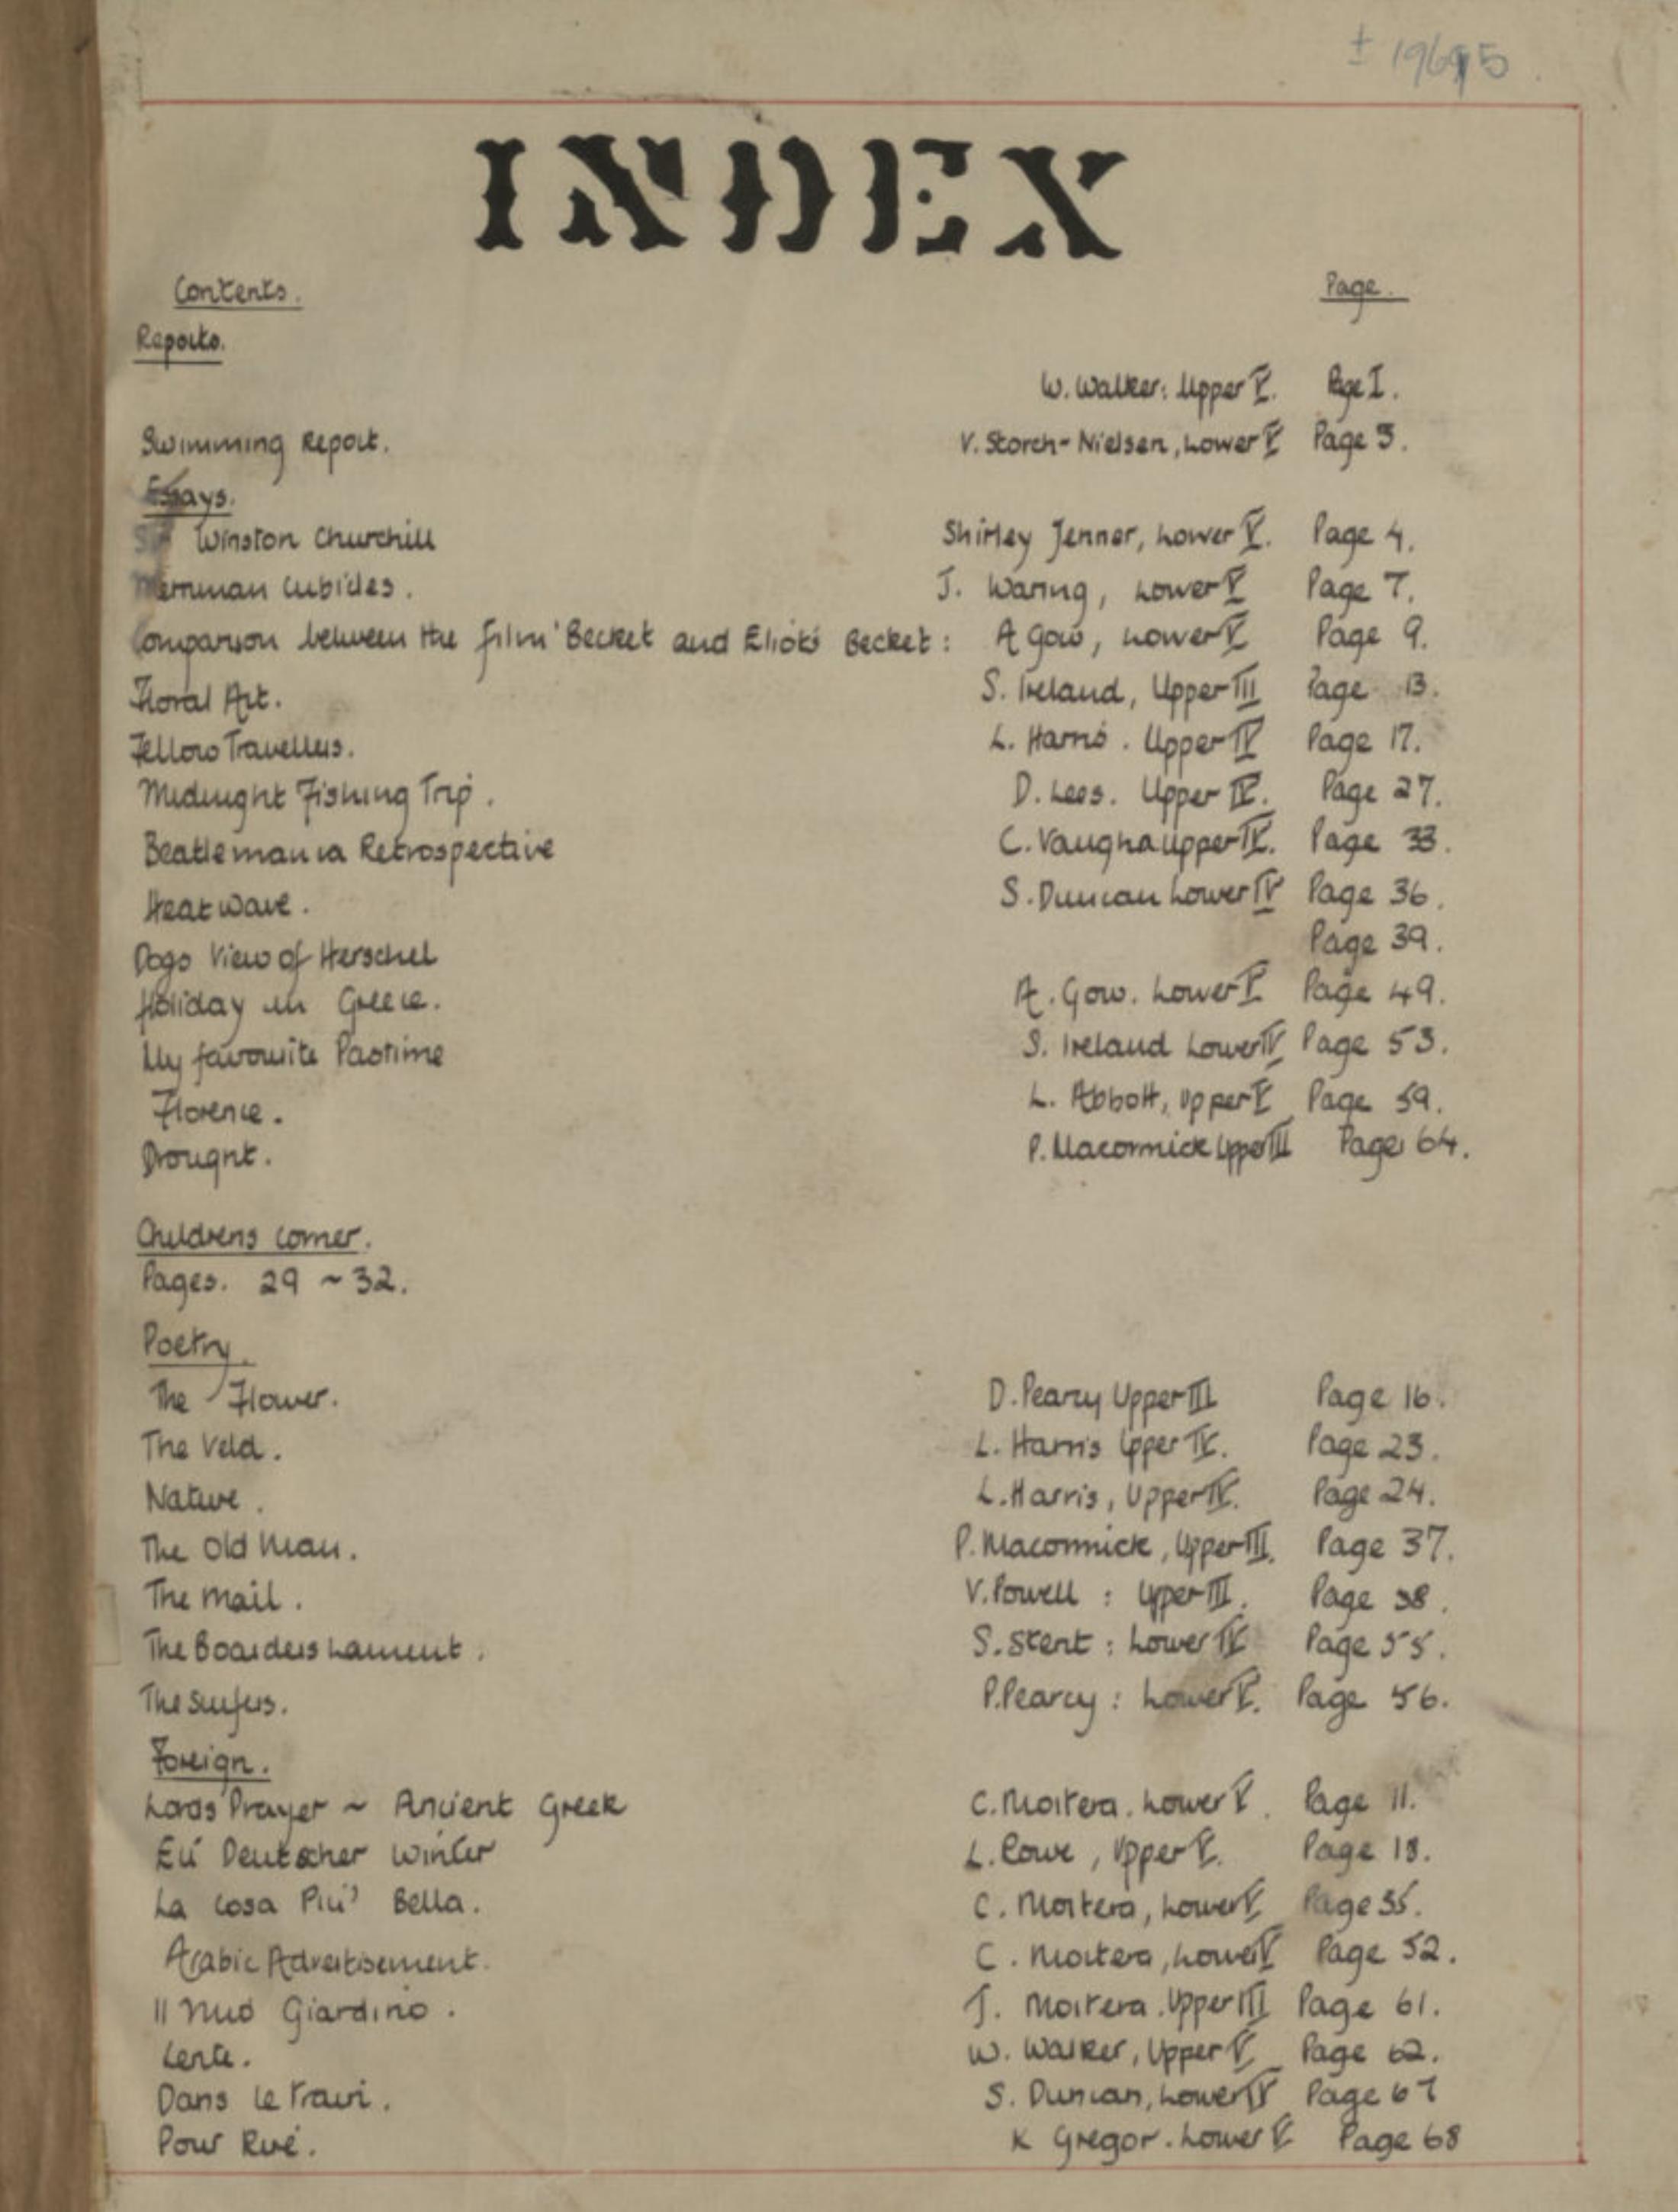 ± 1965
INDEX
Contents. Page.
Reports.
W. Walker: Upper V. Page I.
Swimming Report. V. Storch-Nielsen, Lower V Page 3.
Essays.
Sir Winston Churchill Shirley Jenner, Lower V. Page 4.
Merriman Cubicles. J. Waring, Lower V Page 7.
Comparison between the film 'Becket and Eliot's Becket: A Gow, Lower V Page 9.
Floral Art. S. Ireland, Upper III Page 13.
Fellow Travellers. L. Harris. Upper IV Page 17.
Midnight Fishing Trip. D. Lees. Upper IV. Page 27.
Beatlemania Retrospective C. Vaughan Upper IV. Page 33.
Heatwave. S. Duncan Lower IV Page 36.
Page 39.
Dogs View of Herschel
Holiday in Greece. A. Gow. Lower V Page 49.
My favourite Pastime S. Ireland Lower IV Page 53.
Florence. L. Abbott, Upper V Page 59.
Drought. P. Macormick Upper III Page 64.
Childrens Corner.
Pages. 29 ~ 32.
Poetry.
The Flower. D. Pearcy Upper III Page 16.
The Veld. L. Harris Upper IV. Page 23.
Nature. L. Harris, Upper IV. Page 24.
The Old Man. P. Macormick, Upper III. Page 37.
The Mail. V. Powell: Upper III. Page 38.
The Boarders Lament. S. Stent: Lower IV Page 55.
The Surfers. P. Pearcy: Lower V. Page 56.
Foreign.
Lords Prayer ~ Ancient Greek C. Mortera. Lower V. Page 11.
Deutscher Winter L. Rowe, Upper V. Page
La Cosa Piu' Bella. C. Mortera, Lower V Page 35.
Arabic Advertisement. C. Mortera, Lower V Page 52.
Il Mio Giardino. J. Mortera. Upper III Page 61.
W. Walker, Upper V Page 62.
Dans le Train. S. Duncan, Lower IV Page 67
Pour K Gregor. Lower V Page 68